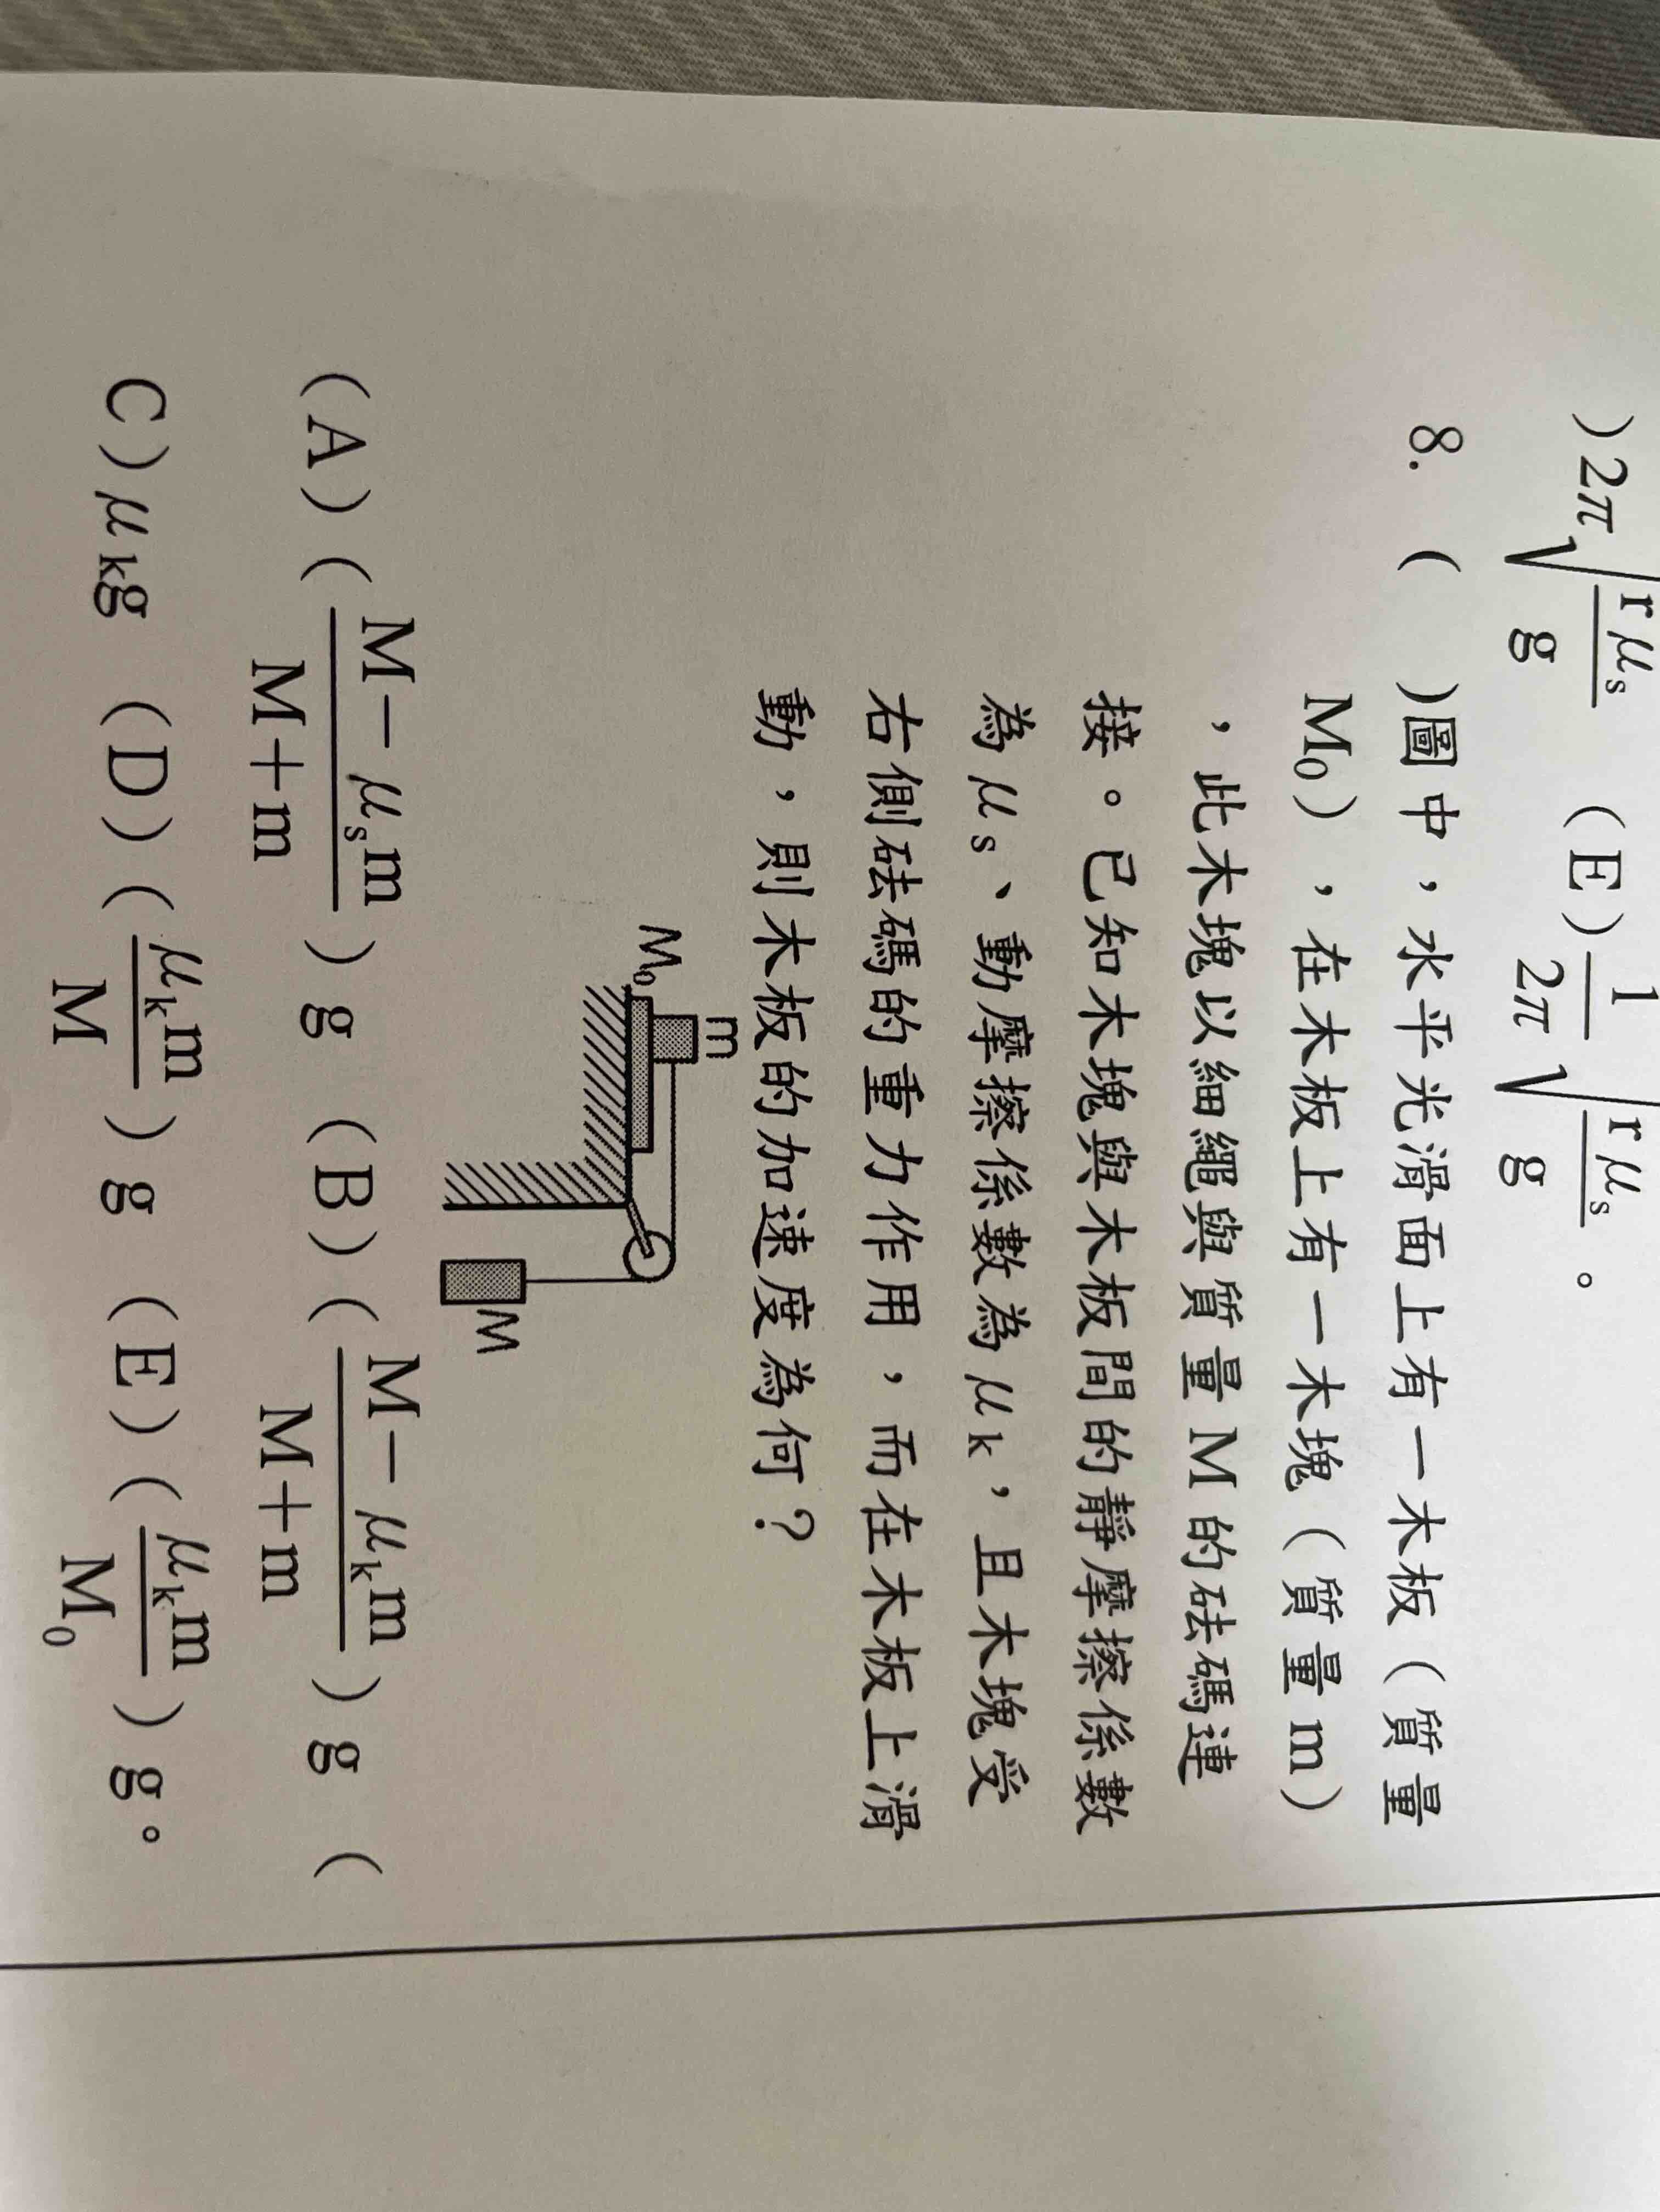 )2π√(rμs/g) (E) 1/2π √(rμs/g) 。
8. ( )圖中，水平光滑面上有一木板（質量
M₀），在木板上有一木塊（質量m）
，此木塊以細繩與質量M的砝碼連
接。已知木塊與木板間的靜摩擦係數
為μs、動摩擦係數為μk，且木塊受
右側砝碼的重力作用，而在木板上滑
動，則木板的加速度為何？
m
M₀
M
(A)((M－μsm)/(M＋m))g (B)((M－μkm)/(M＋m))g (
C)μkg (D)(μkm/M)g (E)(μkm/M₀)g。